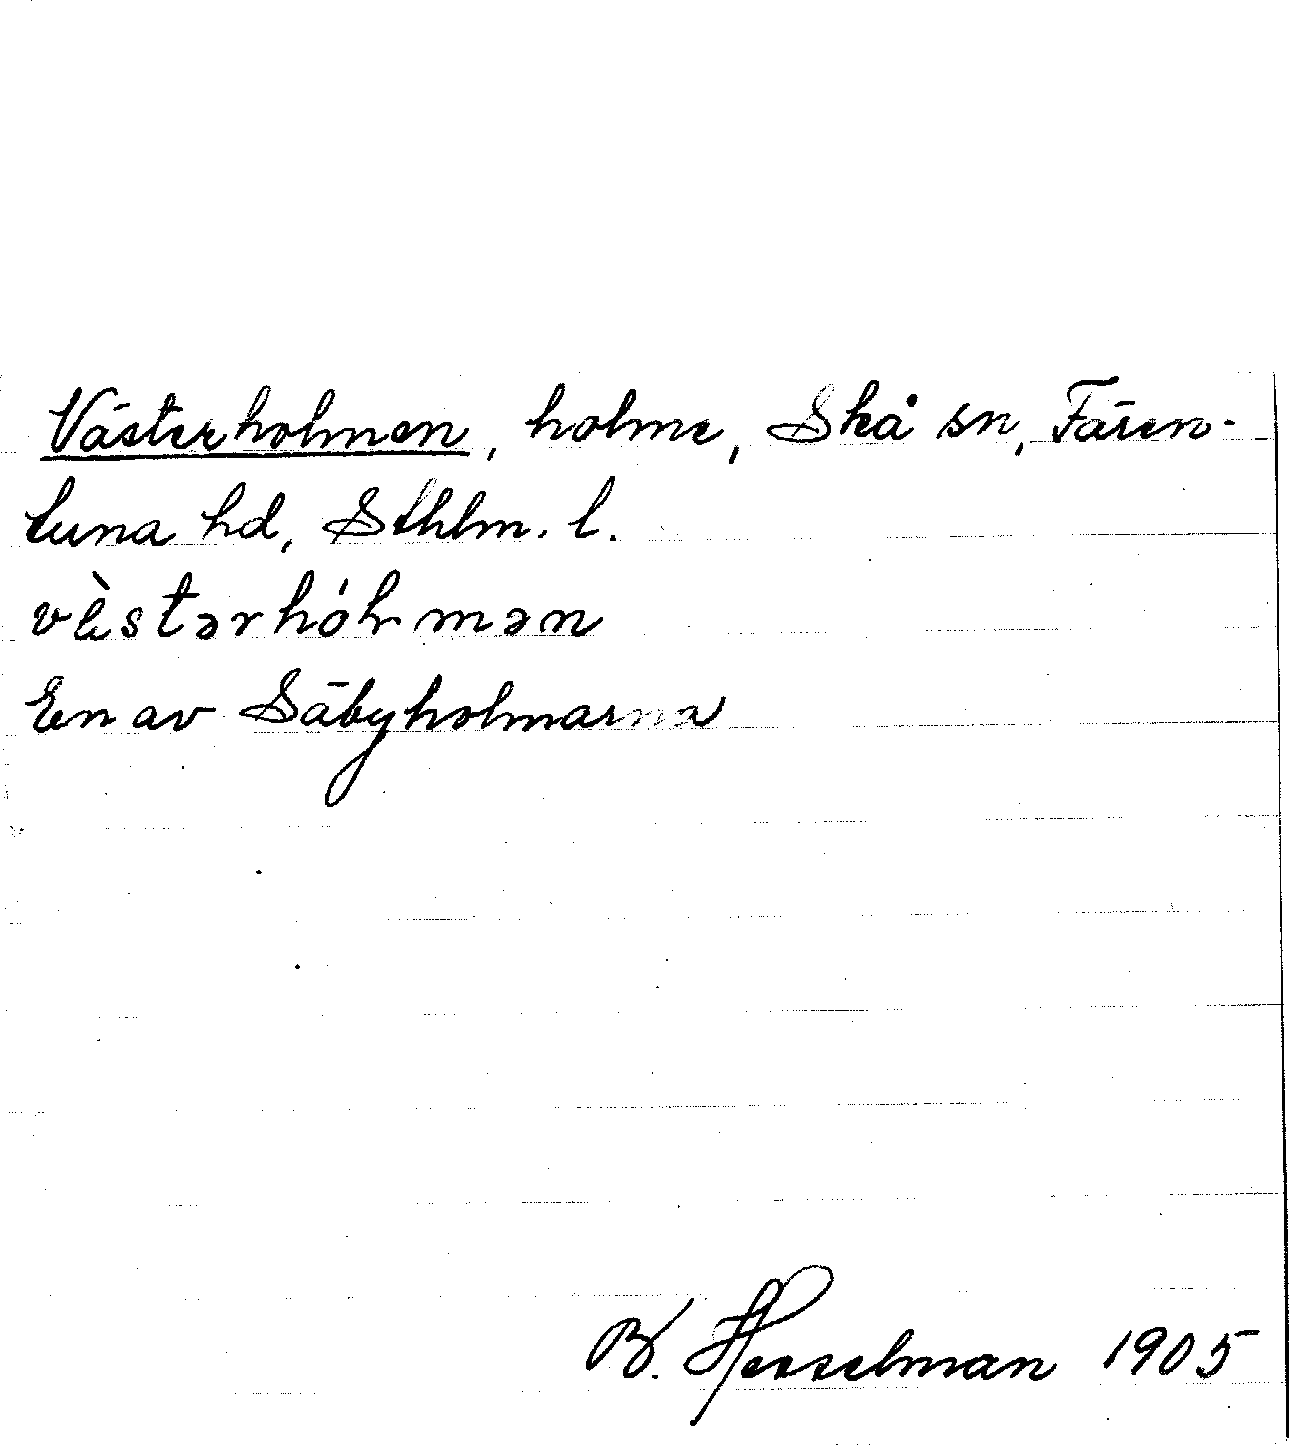 Västerholmen, holme, Skå sn, Fären-
tuna hd, Sthlm. l.
En av Säbyholmarna
B. Hesselman 1905